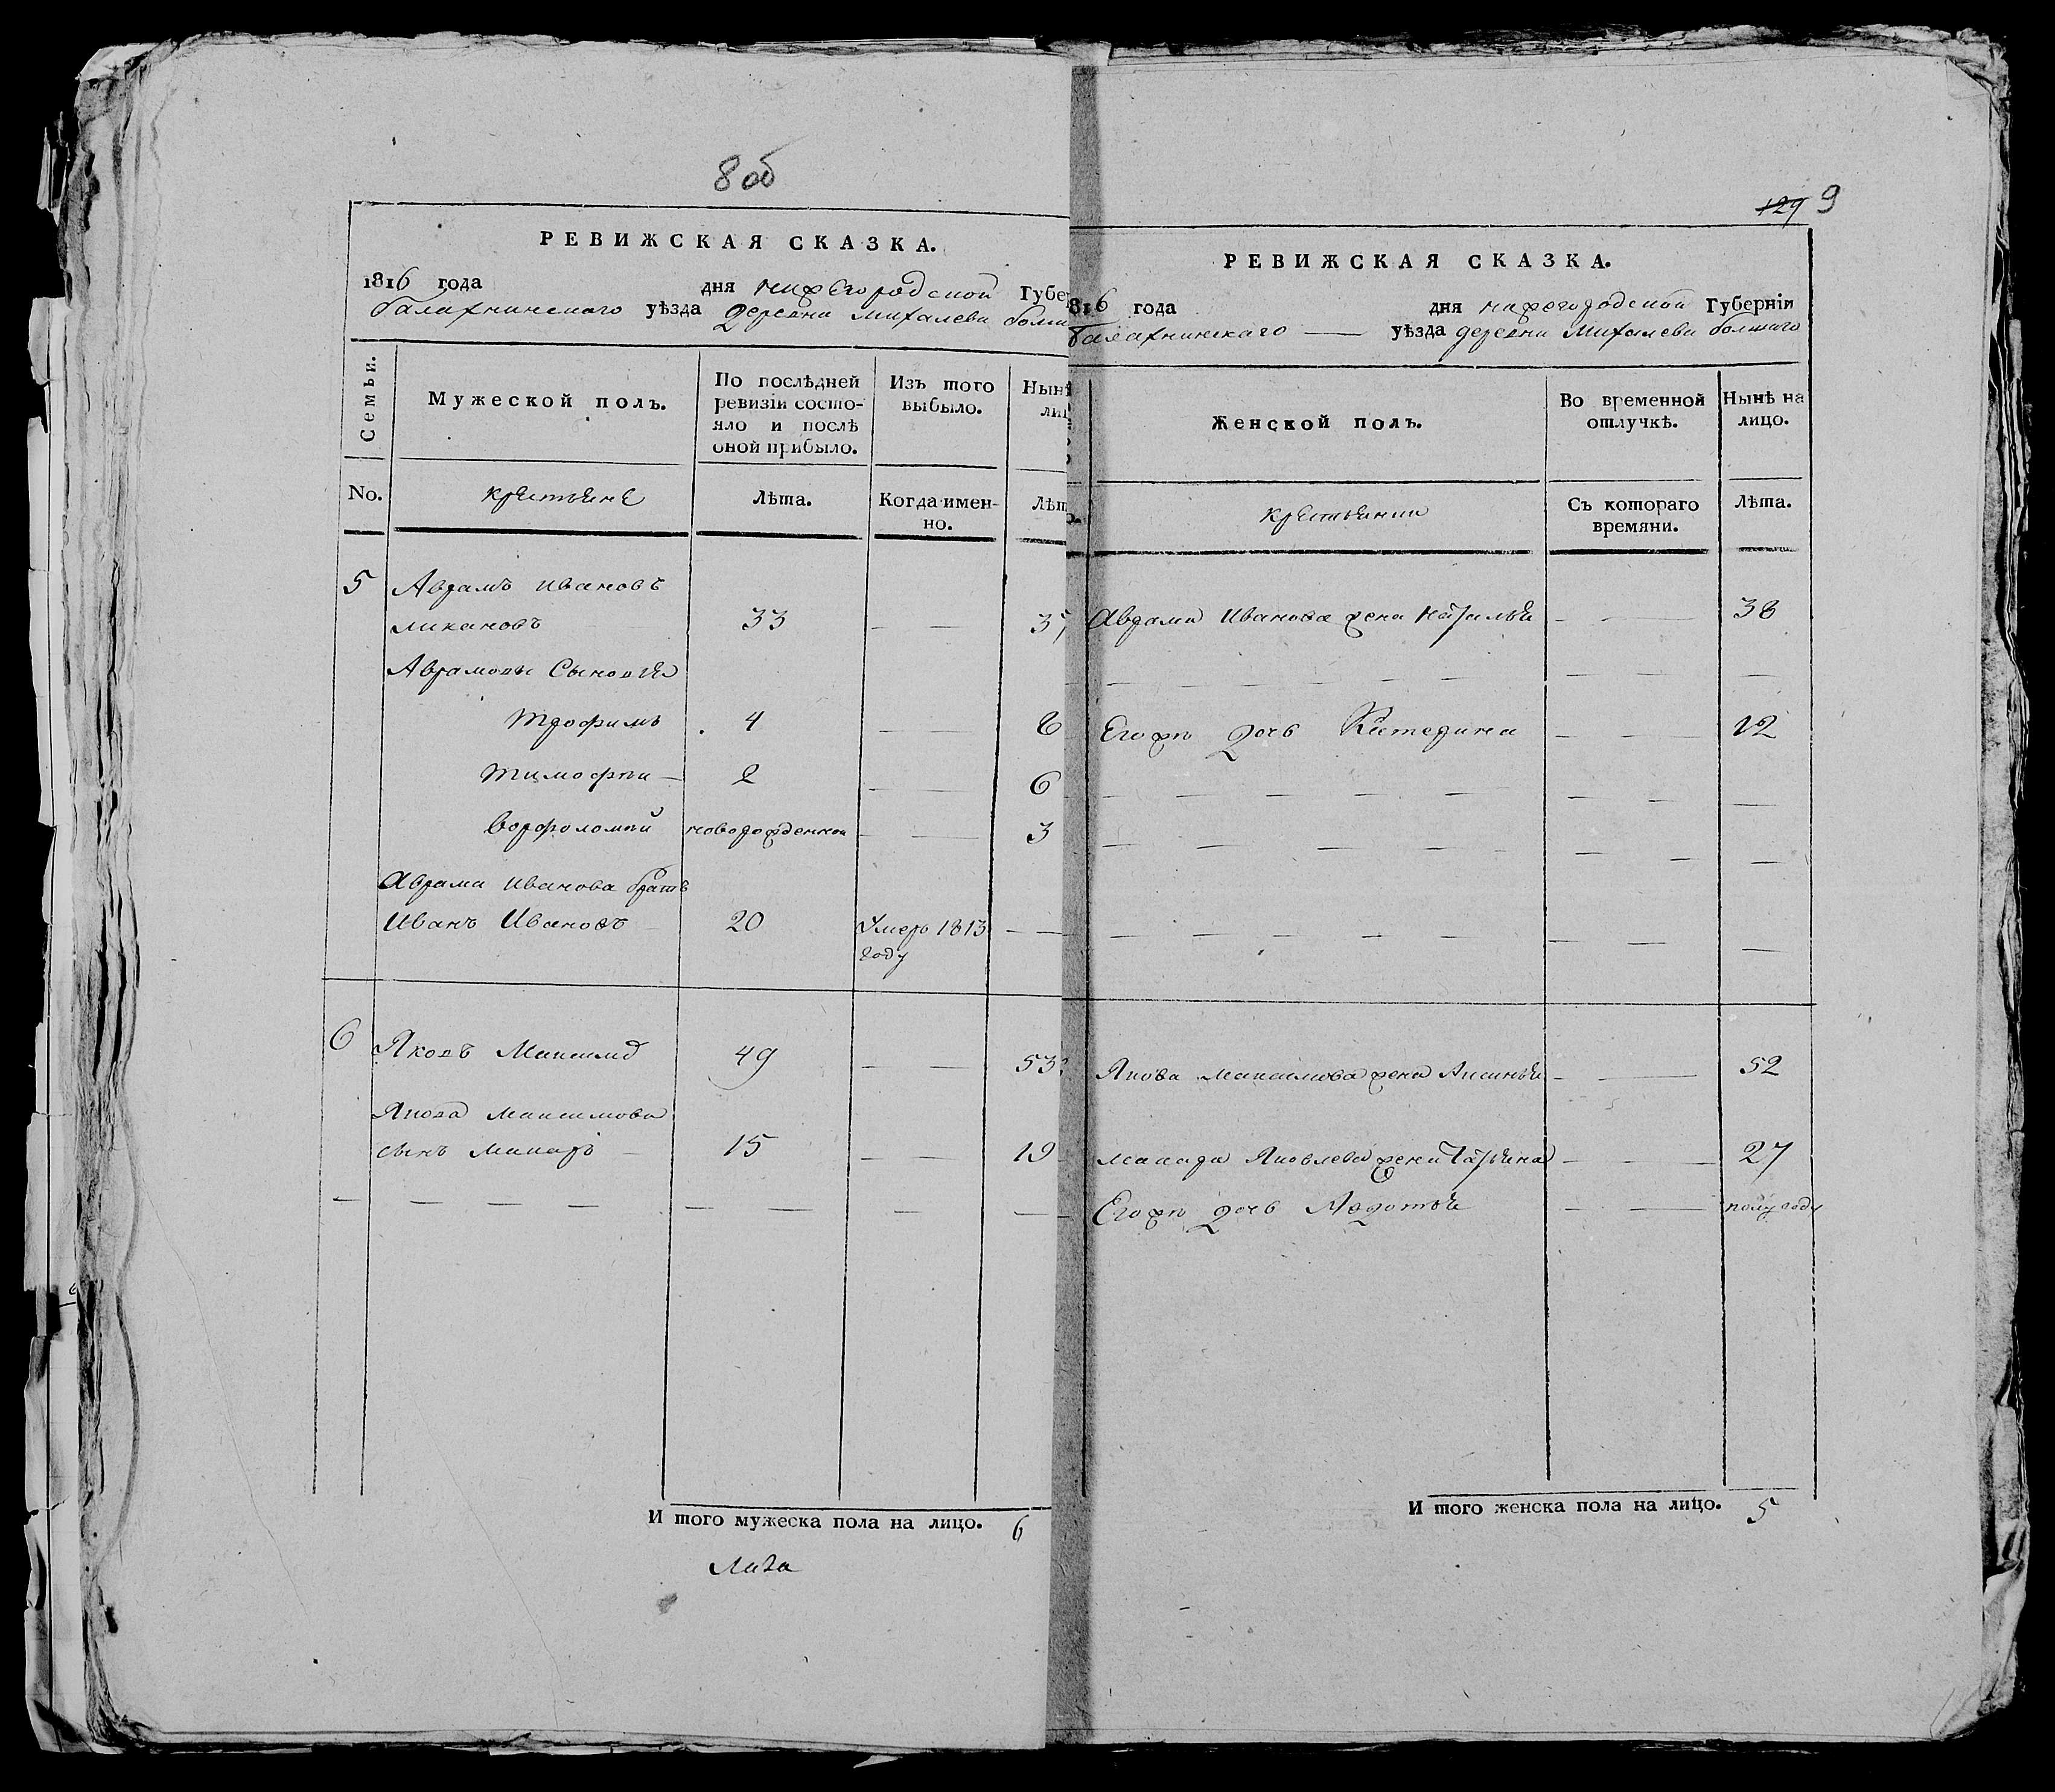 8об
РЕВИЖСКАЯ СКАЗКА.
1816 года дня нижегородской Губер
балахнинскаго уѣзда деревни Михалева болша
Семьи.
Мужеской полъ.
По послѣдней ревизіи состо-
яло и послѣ
оной прибыло.
Изъ того
выбыло.
Нынѣ
ли
No.
крестьяне
Лѣта.
Когда имен-
но.
Лѣт
5 Аврамъ Ивановъ
33 — — 37
Аврамовы Сыновья
Трофимъ 4 — — 8
Тимофѣи 2 — — 6
Ворфоломѣй новорожденной — — 3
Аврама Иванова братъ
Иванъ Ивановъ 20 Умеръ 1813 — —
году
6 Яковъ Максимо 49 — — 53
Якова Максимова
сынъ Макаръ 15 — — 19
И того мужеска пола на лицо. 6
129 9
РЕВИЖСКАЯ СКАЗКА.
816 года дня нижегородской Губерніи
балахнинскаго — уѣзда деревни Михалева болшаго
Женской полъ.
Во временной
отлучкѣ.
Нынѣ на
лицо.
крестьянки
Съ котораго
времяни.
Лѣта.
Аврама Иванова жена Наталья — — 38
Егожъ дочь Катерина — — 12
Якова Максимова жена Аксинья — — 52
Макара Яковлева жена Татьяна — — 27
Егожъ дочь Авдотья — — полугоду
И того женска пола на лицо. 5